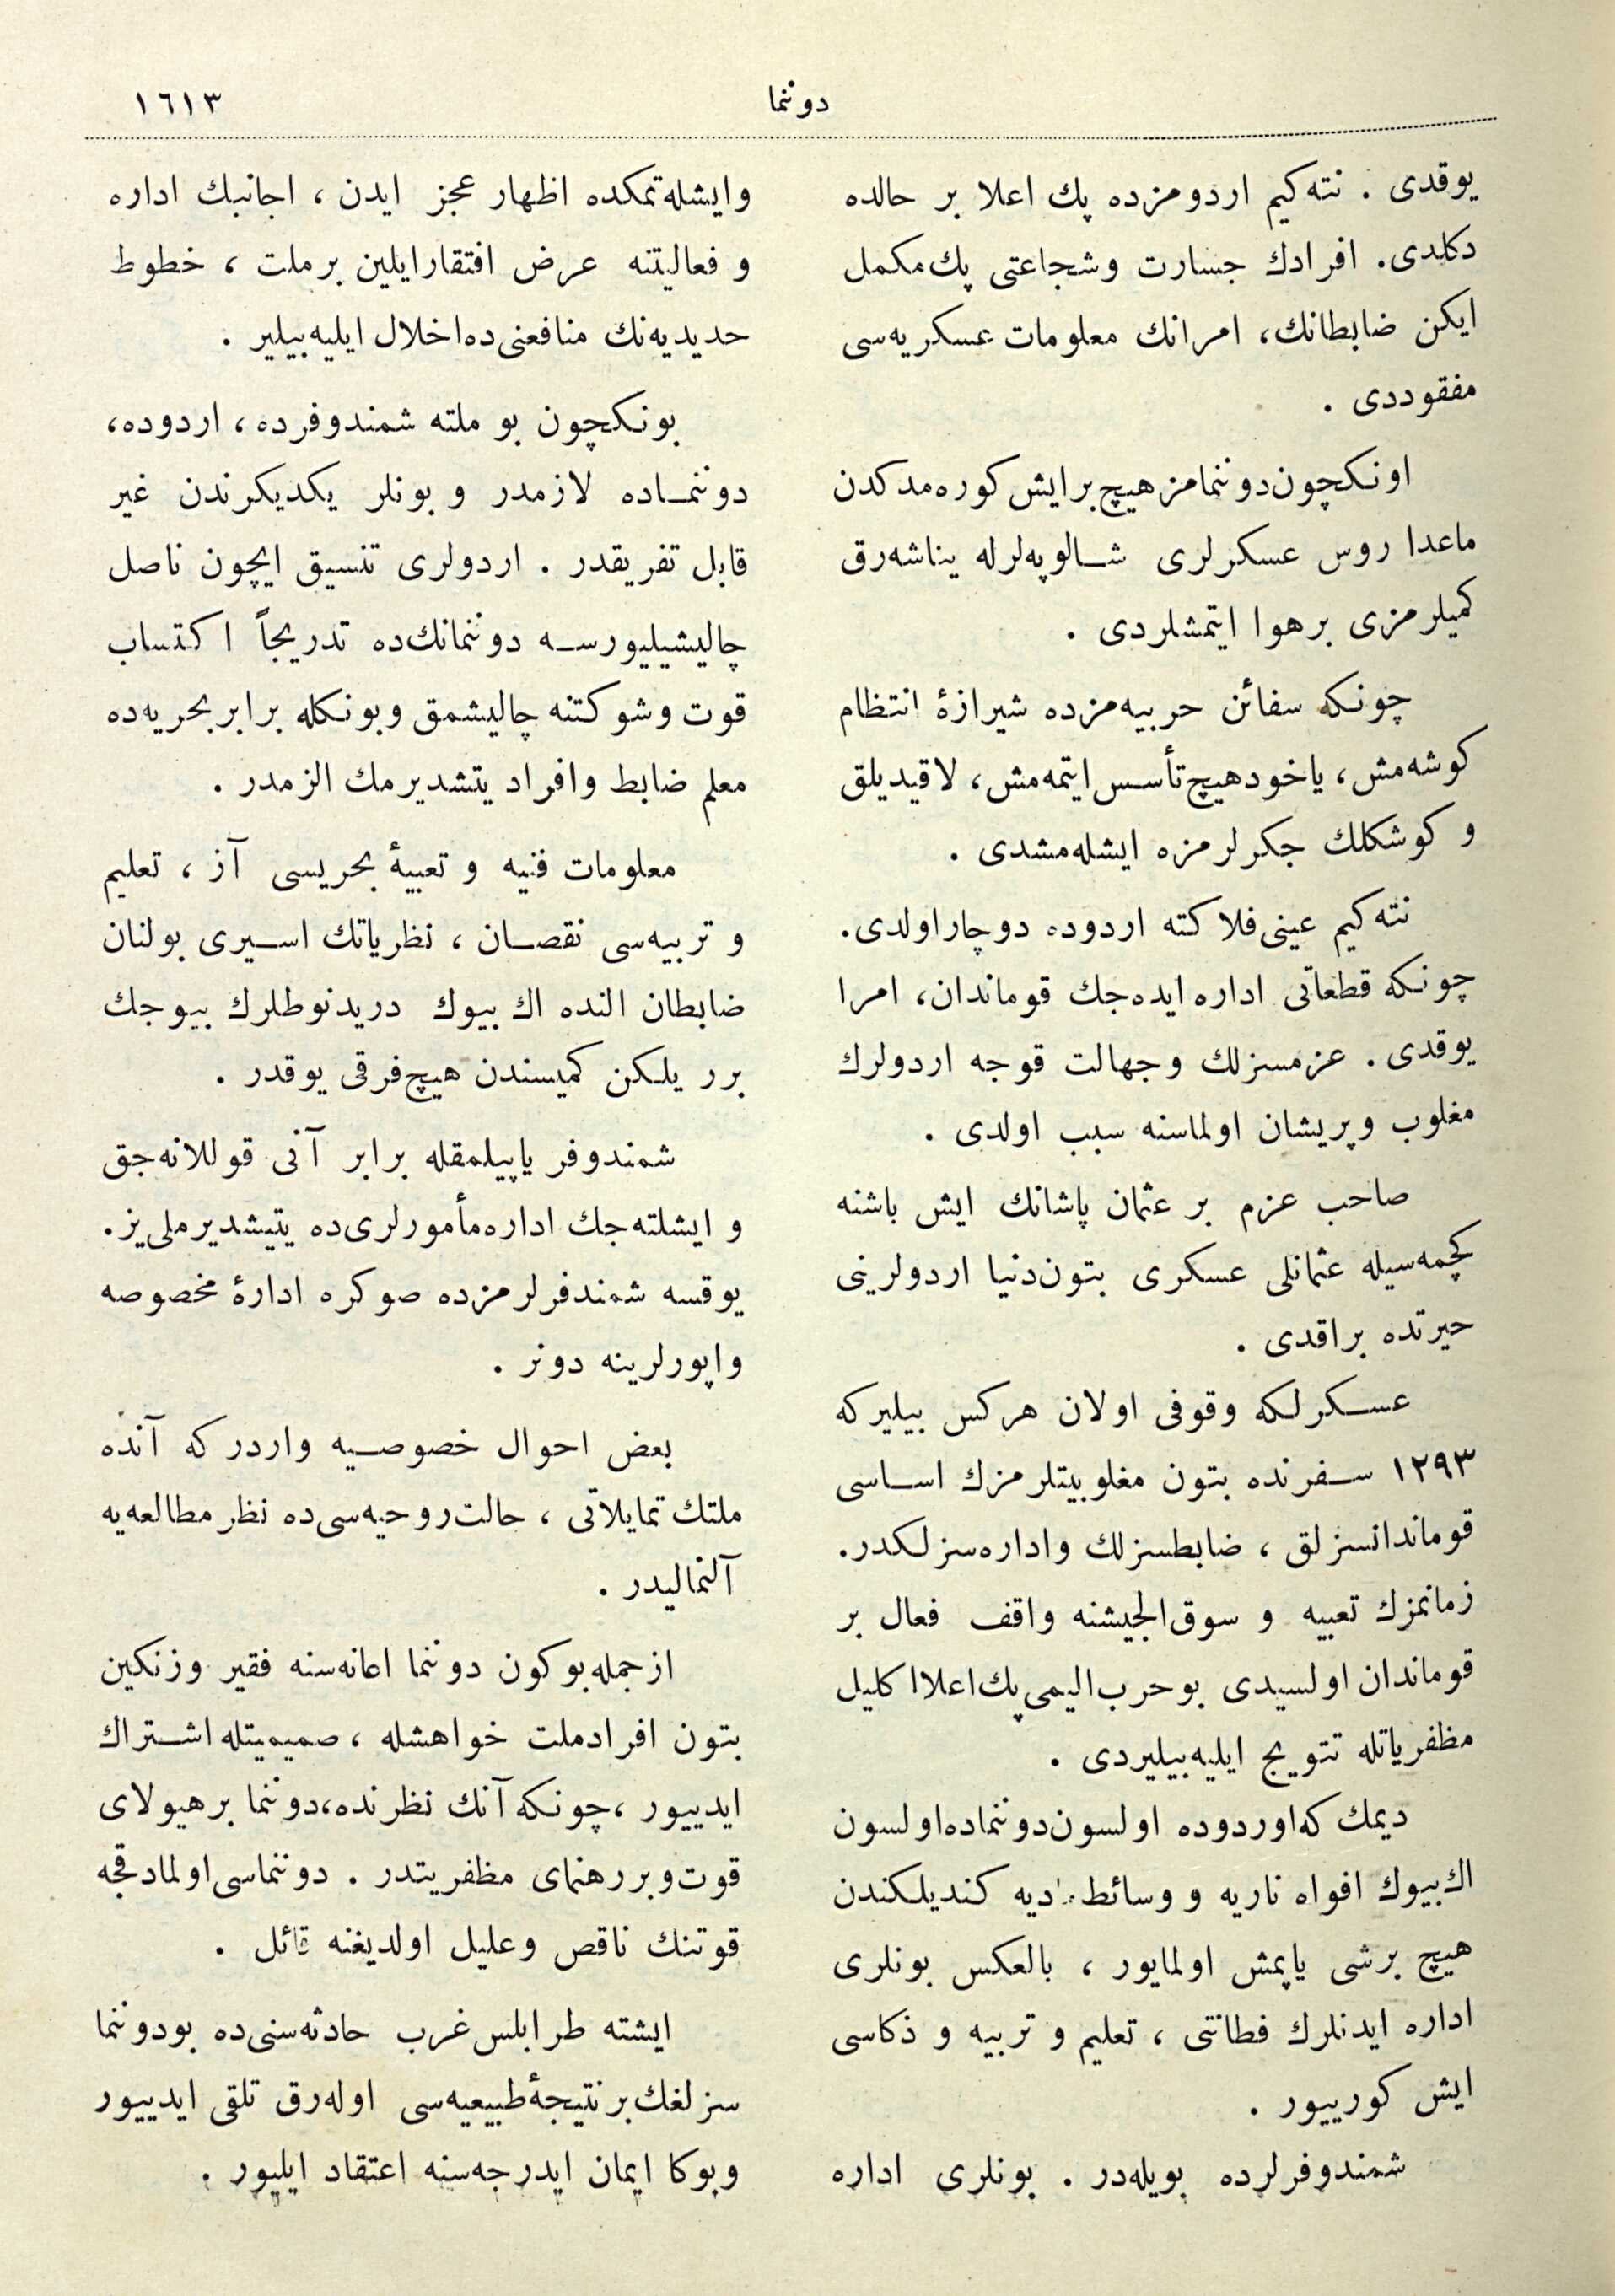 دوننما
١٦١٣
يوقدى . نته‌كيم اردومزده پك اعلا بر حالده
دكلدى. افرادك جسارت وشجاعتى پك مكمل
ايكن ضابطانك، امرانك معلومات عسكريه‌سى
مفقوددى .
اونكچون دوننمامز هيچ برايش كوره‌مدكدن
ماعدا روس عسكرلرى شالوپه‌لرله يناشه‌رق
كميلرمزى برهوا ايتمشلردى .
چونكه سفائن حربيه‌مزده شيرازۀ انتظام
كوشه‌مش، ياخود هيچ تأسس ايتمه‌مش، لاقيديلق
و كوشكلك جكرلرمزه ايشله‌مشدى .
نته‌كيم عينى فلاكته اردوده دوچار اولدى.
چونكه قطعاتى اداره ايده‌جك قوماندان، امرا
يوقدى . عزمسزلك وجهالت قوجه اردولرك
مغلوب وپريشان اولماسنه سبب اولدى .
صاحب عزم بر عثمان پاشانك ايش باشنه
كچمه‌سيله عثمانلى عسكرى بتون دنيا اردولرينى
حيرتده براقدى .
عسكرلكه وقوفى اولان هركس بيليركه
١٢٩٣ سفرنده بتون مغلوبيتلرمزك اساسى
قوماندانسزلق ، ضابطسزلك واداره‌سزلكدر.
زمانمزك تعبيه و سوق‌الجيشنه واقف فعال بر
قوماندان اولسيدى بو حرب اليمى پك اعلا اكليل
مظفرياتله تتويج ايليه‌بيليردى .
ديمك كه اوردوده اولسون دوننماده اولسون
اك بيوك افواه ناريه و وسائط ديه كنديلكندن
هيچ برشى ياپمش اولمايور ، بالعكس بونلرى
اداره ايدنلرك فطانتى ، تعليم و تربيه و ذكاسى
ايش كورييور .
شمندوفرلرده بويله‌در . بونلرى اداره
وايشله‌تمكده اظهار عجز ايدن ، اجانبك اداره
و فعاليتنه عرض افتقار ايلين برملت ، خطوط
حديديه‌نك منافعنى‌ده اخلال ايليه‌بيلير .
بونكچون بو ملته شمندوفرده ، اردوده،
دوننماده لازمدر و بونلر يكديكرندن غير
قابل تفريقدر . اردولرى تنسيق ايچون ناصل
چاليشيليورسه دوننمانك‌ده تدريجاً اكتساب
قوت وشوكتنه چاليشمق وبونكله برابر بحريه‌ده
معلم ضابط وافراد يتشديرمك الزمدر .
معلومات فنيه و تعبيۀ بحريسى آز ، تعليم
و تربيه‌سى نقصان ، نظرياتك اسيرى بولنان
ضابطان النده اك بيوك دريدنوطلرك بيوجك
برر يلكن كميسندن هيچ فرقى يوقدر .
شمندوفر ياپيلمقله برابر آنى قوللانه‌جق
و ايشلته‌جك اداره مأمورلرى‌ده يتيشديرملى‌يز.
يوقسه شمندفرلرمزده صوكره ادارۀ مخصوصه
واپورلرينه دونر .
بعض احوال خصوصيه واردر كه آنده
ملتك تمايلاتى ، حالت روحيه‌سى‌ده نظر مطالعه‌يه
آلنماليدر .
ازجمله بوكون دوننما اعانه‌سنه فقير وزنكين
بتون افراد ملت خواهشله ، صميميتله اشتراك
ايدييور ، چونكه آنك نظرنده، دوننما برهيولاى
قوت وبر رهنماى مظفريتدر . دوننماسى اولمادقجه
قوتنك ناقص وعليل اولديغنه قائل .
ايشته طرابلس غرب حادثه‌سنى‌ده بودوننما
سزلغك بر نتيجۀ طبيعيه‌سى اوله‌رق تلقى ايدييور
وبوكا ايمان ايدرجه‌سنه اعتقاد ايليور .